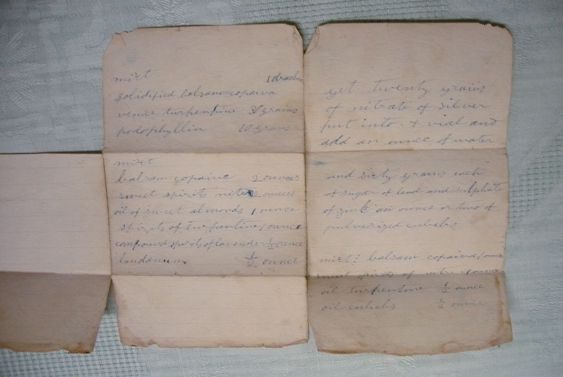 mixt 1 drachm
solidified balsam copaiva
venice turpentine 36 grains
podophyllin 10 grains
mixt
balsam copaiva 2 ounces
sweet spirit nitre 2 ounces
oil of sweet almonds 1 ounce
spirits of turpentine 1 ounce
compound spirit of lavender ½ ounce
laudanum ½ ounce
get twenty grains
of nitrate of silver
put into a vial and
add an ounce of water
and sixty grains each
of sugar of lead and sulphate
of zink an ounce or two of
pulverized cubebs
mixt balsam copaiva
oil turpentine ½ ounce
oil cubebs ½ ounce